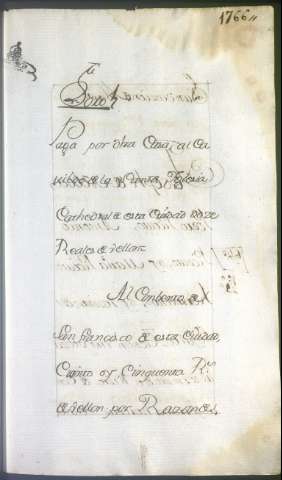 1766
Paga por otra Casa, al Ca-
vildo de la Santa Iglesia
Cathedral de esta Ciudad doze
Reales de vellon
Al Combento de
San francisco de esta Ciudad,
Ciento y Cinquenta Rs.
de vellon por Razon de